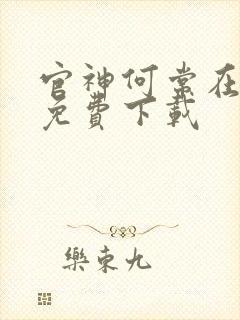 官神何常在
免費下載
樂東九